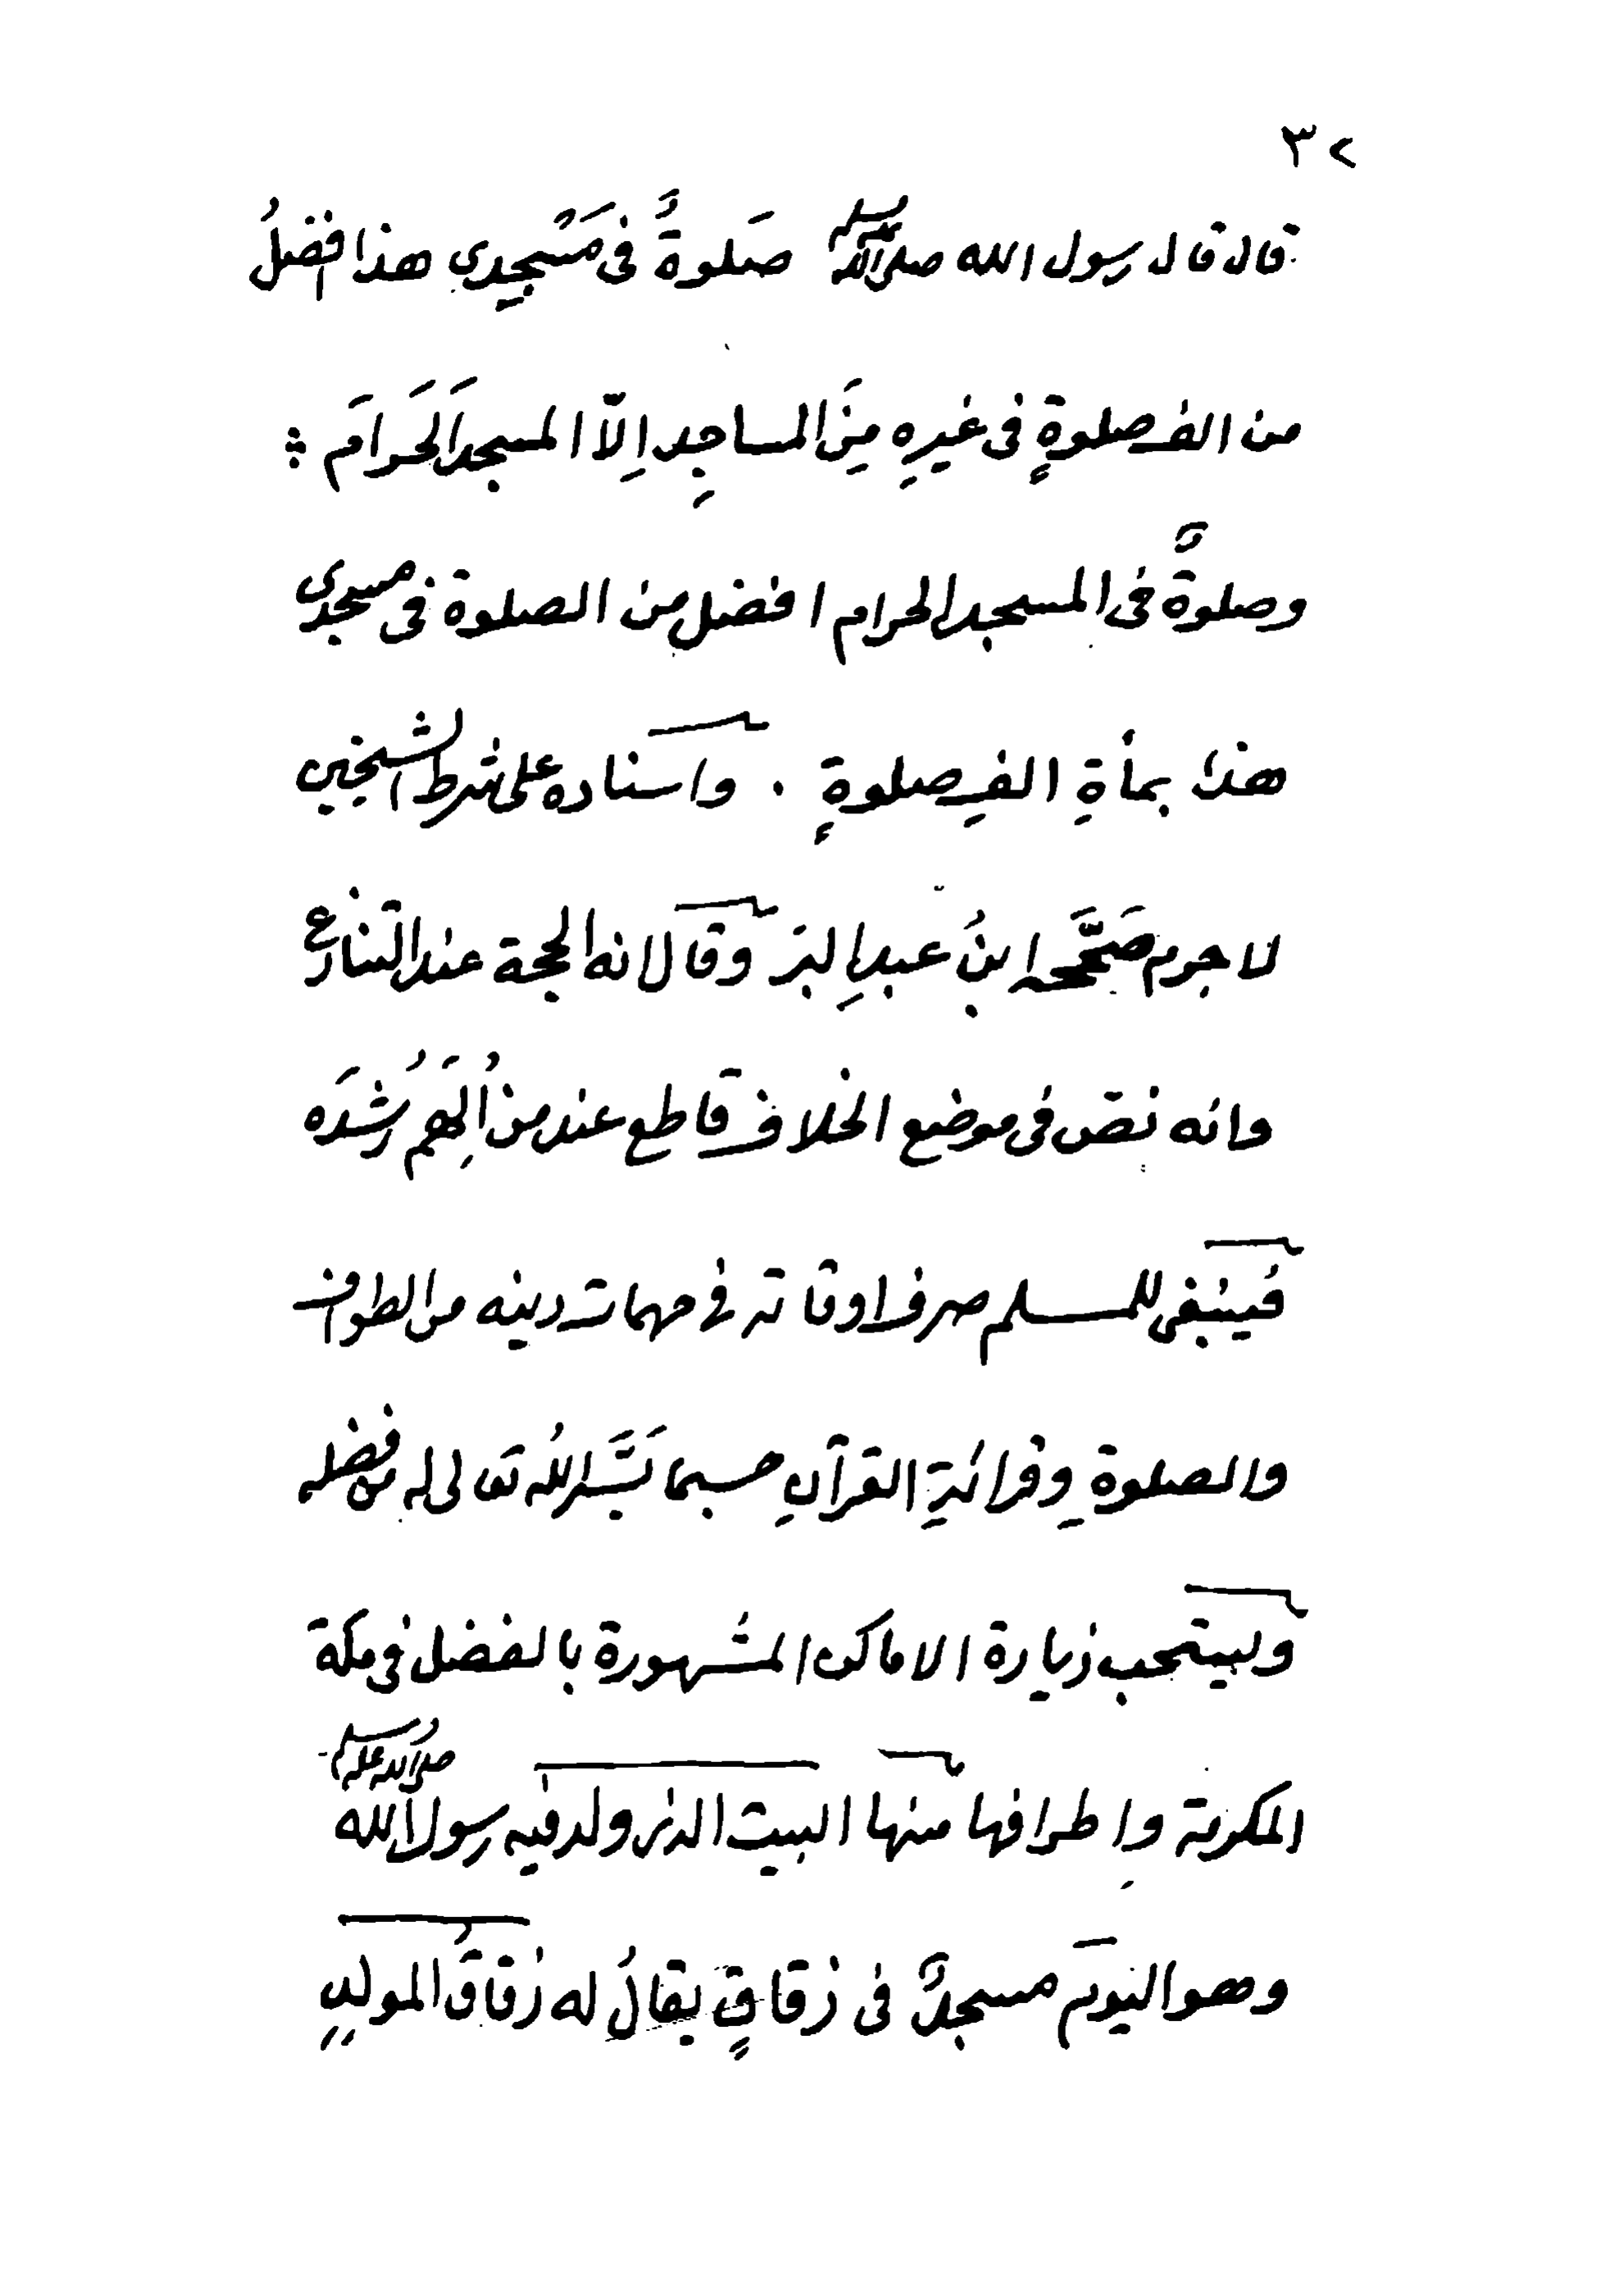 ٣٢
قال قال رسول الله صلى الله عليه وسلم صَلوةٌ فى مَسْجِدي هذا افضلُ
من الف صلوةٍ فى غيرِه مِنَ المساجِد اِلّا المسجدَ الحَرامَ ؞
وصلوةٌ فى المسجد الحرام افضل من الصلوة فى مسجدى
هذا بمأةِ الفِ صلوةٍ . واسناده على شرط الشيخين
لا جرم صَحَّحه ابنُ عبدِ البرّ وقال انه الحجة عند التنازع
وانه نصّ فى موضع الخلاف قاطع عند من اُلهِمَ رُشدَه
فينبغى للمسلم صرف اوقاته فى مهمات دينه من الطواف
والصلوةِ وقرائةِ القرآنِ حسبما يَسَّر اللهُ تعالى له من فضله
ويستحب زيارة الاماكن المشهورة بالفضل فى مكة
المكرمة واطرافها منها البيت الذى ولد فيه رسول الله صلى الله عليه وسلم
وهو اليومَ مسجدٌ فى زقاقٍ يقالُ له زقاقُ المولدِ